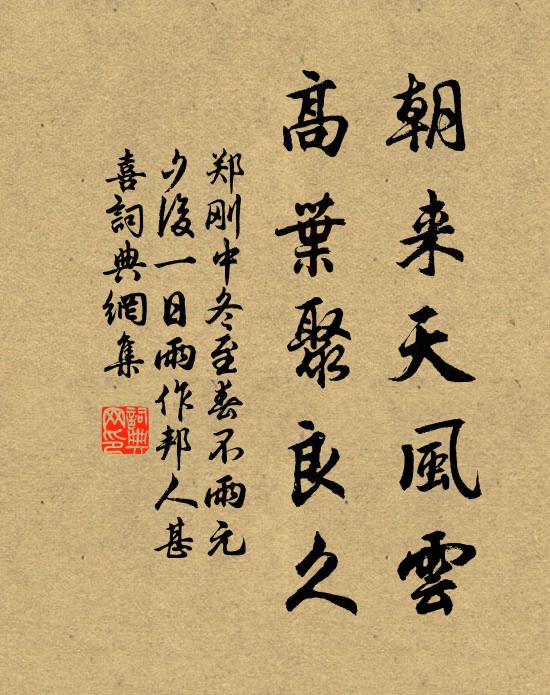 朝来天風雲
高葉聚良久
郑刚中冬至春不雨元
夕後一日雨作邦人甚
喜詞典網集
詞典
网印